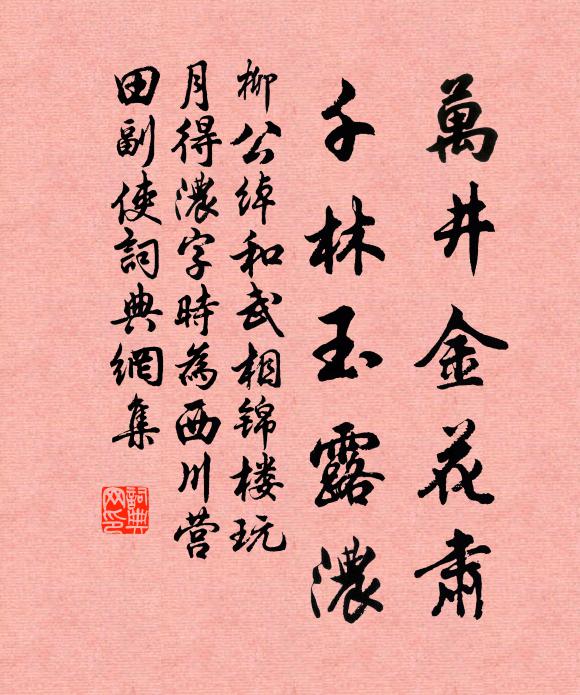 萬井金花肅
千林玉露濃
柳公綽和武相錦楼玩
月得濃字時為西川营
田副使詞典網集
詞典
网印